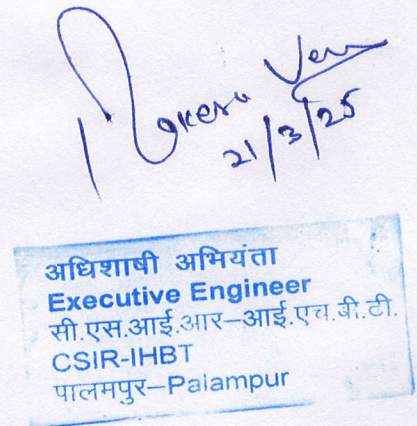 21/3/25
अधिशाषी अभियंता
Executive Engineer
सी.एस.आई.आर–आई.एच.बी.टी.
CSIR-IHBT
पालमपुर–Palampur